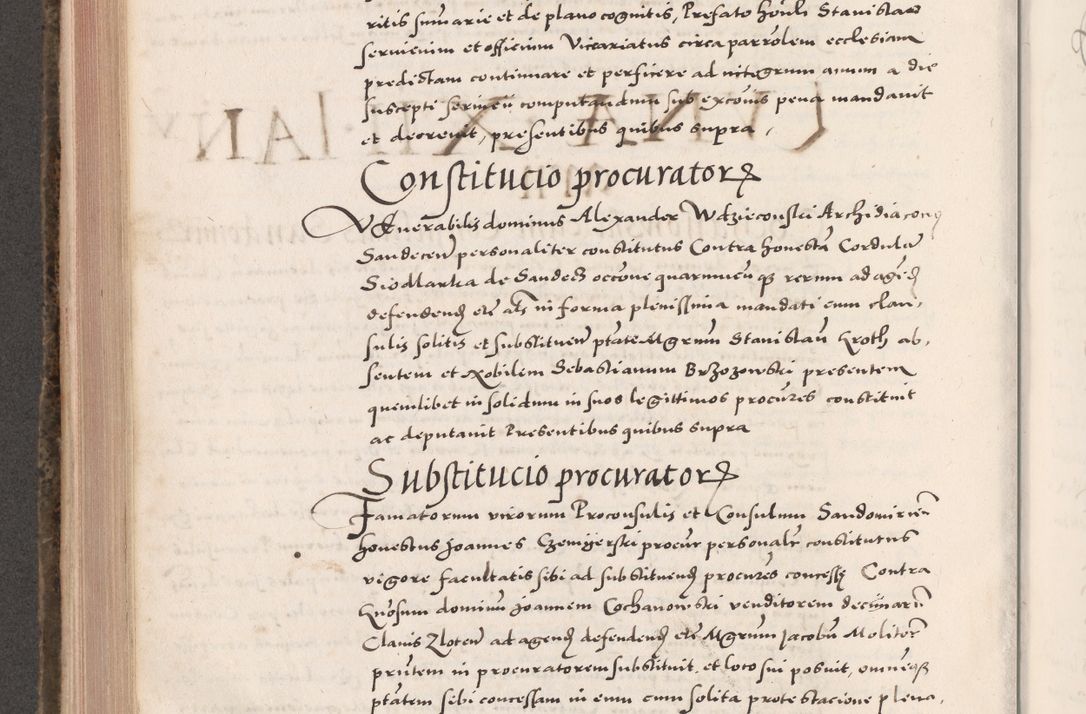 ritis sumarie et de plano cognitis, Prefato honli Stanislao
servicium et officium Vicariatus circa parrolem ecclesiam
predictam continuare et perficere ad integrum annum a die
suscepti servicii computandum sub excois pena mandavit
et decrevit, presentibus quibus supra
Constitucio procuratorꝝ
VEnerabilis dominus Alexander Wdzieconski Archidiaconꝯ
Sandecen personaliter constitutus Contra honestā Cordulā
Siodlarka de Sandecz occōne quarumcūqꝫ rerum ad agēd
defendend etc als in forma plenissima mandati cum clau,
sulis solitis et substituen ptate Mgrum Stanislaū Kroth ab,
sentem et Nobilem Sebastianum Brzozowski presentem
quemlibet in solidum in suos legittimos procures constituit
ac deputavit Presentibus quibus supra
Substitucio procuratorꝝ
Famatorum virorum Proconsulis et Consulum Sandomirien
honestus Joannes procur personalr constitutus
vigore facultatis sibi ad substituend procures concesse Contra
Gnosum dominū Joannem Cochanowski venditorem decimarū
Clavis Zloten ad agend defendend etc Mgrum Jacobū Moliton
pntem in procuratorem substituit, et loco sui posuit, omnēqꝫ
ptatem sibi concessam in eum cum solita protestacione plena,